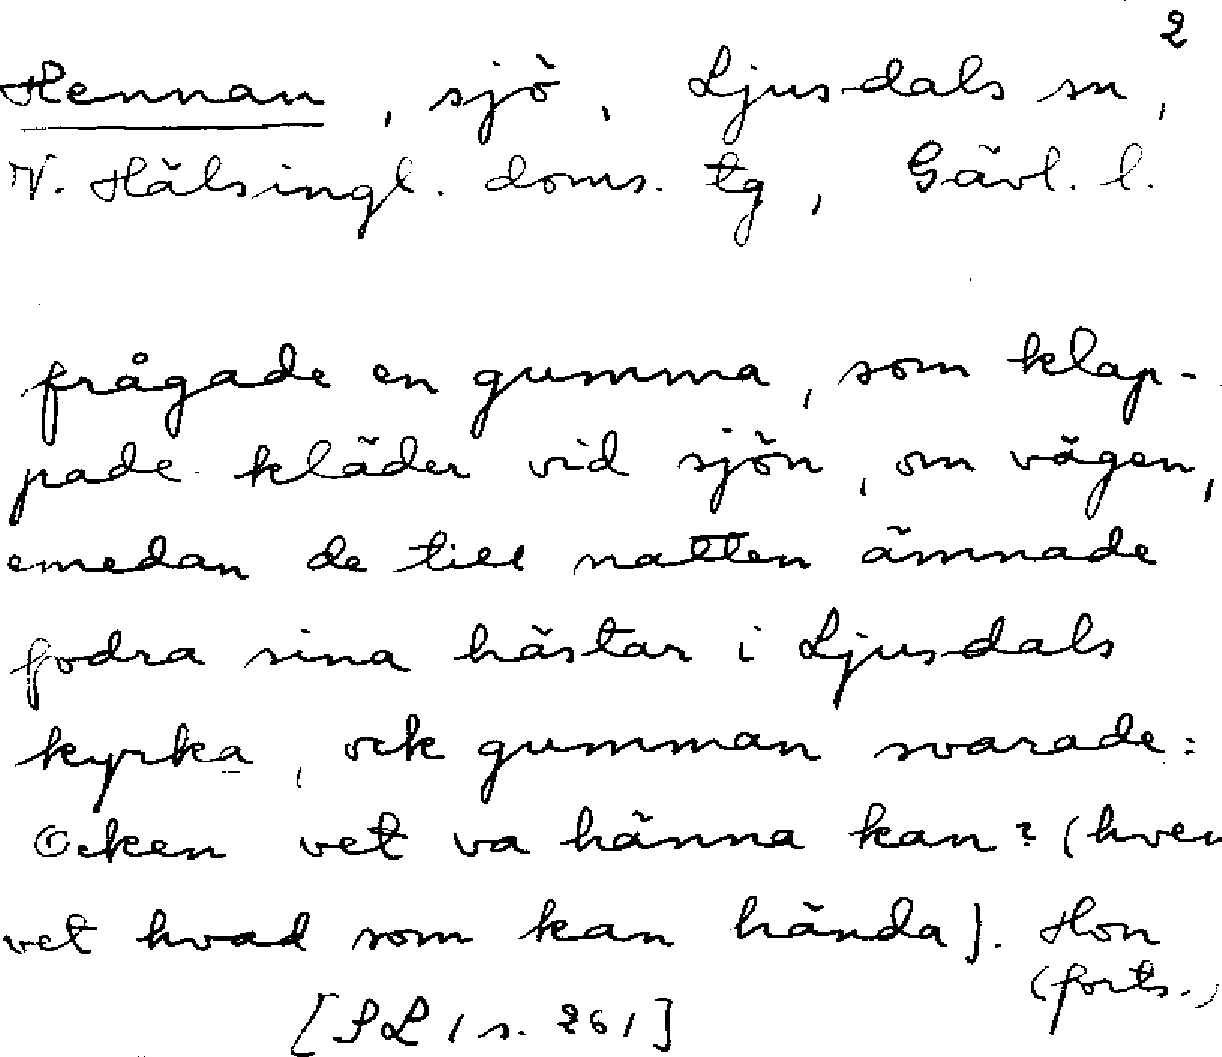 2
Hennan, sjö, Ljusdals sn,
V. Hälsingl. doms. tg, Gävl. l.
frågade en gumma, som klap-
pade kläder vid sjön, om vägen,
emedan de till natten ämnade
fodra sina hästar i Ljusdals
kyrka, ock gumman svarade:
Ocken vet va hänna kan? (hvem
vet hvad som kan hända). Hon
(forts.)
[SL 1 s. 261]